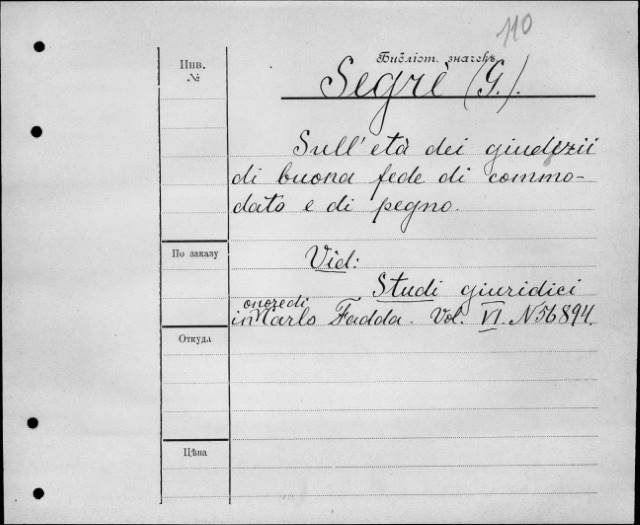 110
Библіот. значекъ
Инв.
№
Segrè (G.).
Sull'età dei giudizii
di buona fede di commo-
dato e di pegno.
По заказу
Vid:
Studi giuridici
onore di
in Carlo Fadda. Vol. VI. N 56894.
Откуда
Цѣна